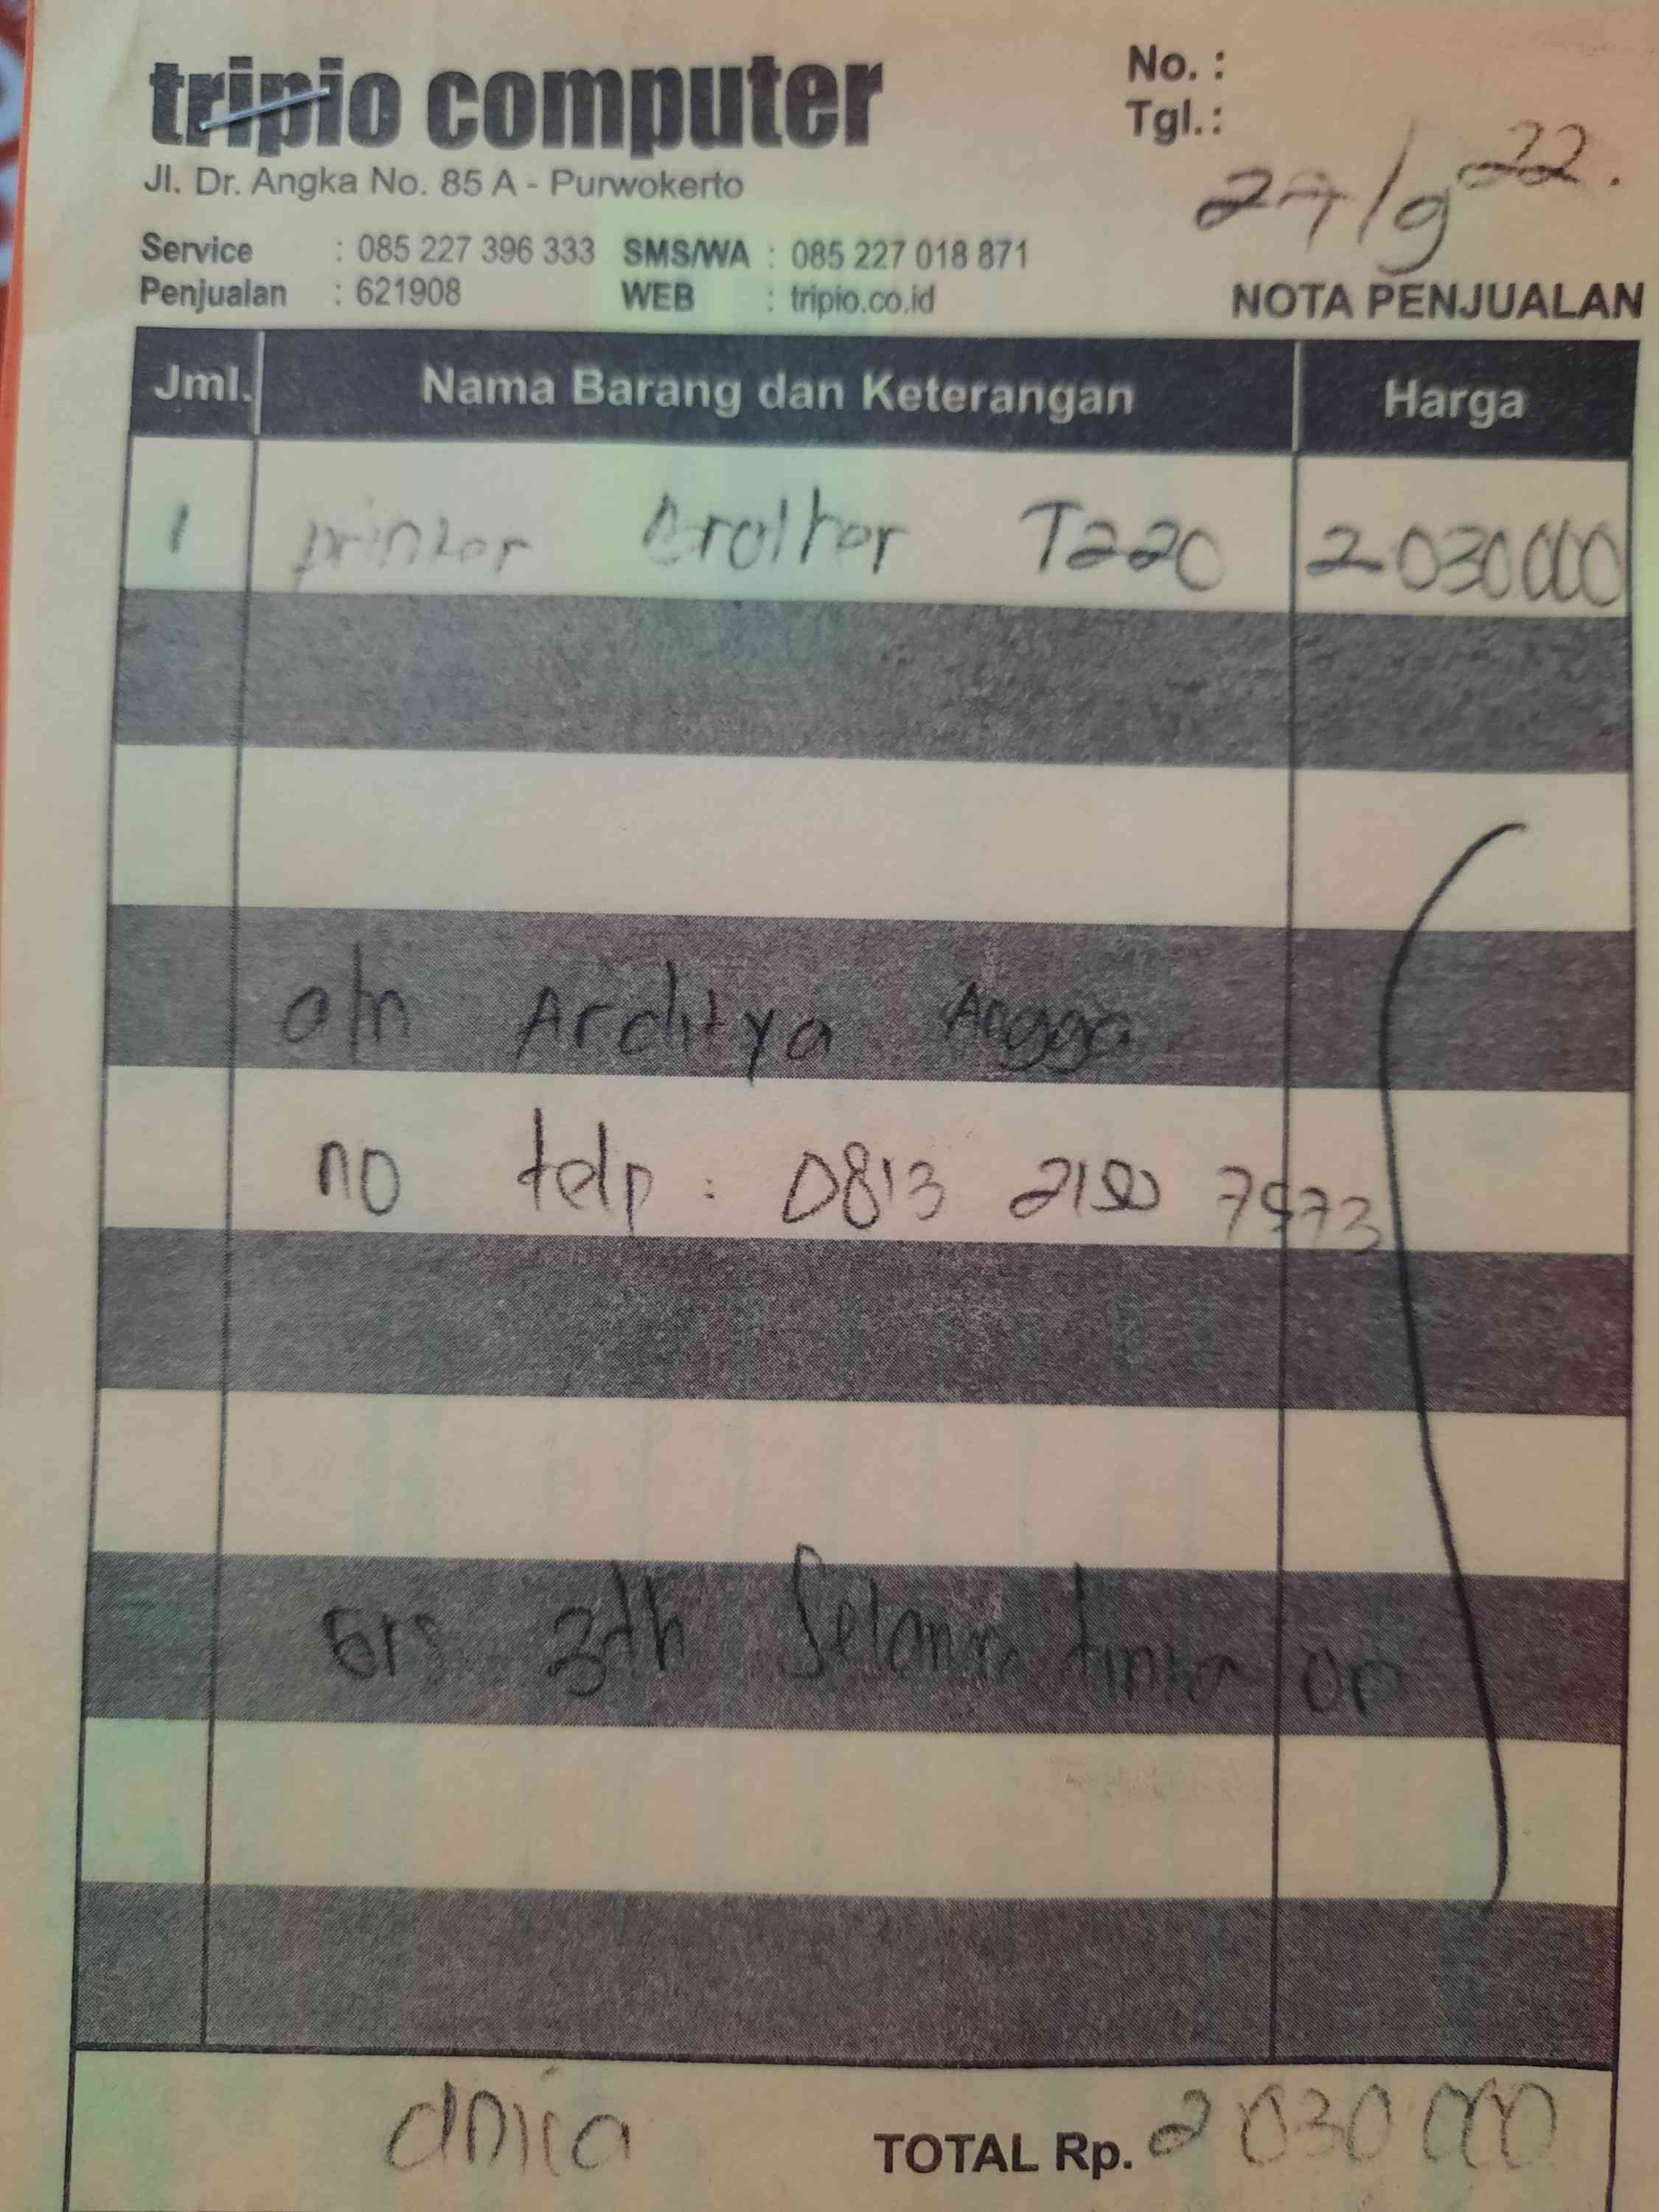 tripio computer
Jl. Dr. Angka No. 85 A - Purwokerto
Service : 085 227 396 333 SMS/WA : 085 227 018 871
Penjualan : 621908 WEB : tripio.co.id
No. :
Tgl.: 27/9 22.
NOTA PENJUALAN
Jml. Nama Barang dan Keterangan Harga
1 printer T220 2030000
a/n Arditya Angga
no telp : 0813
3th Selama tinta
TOTAL Rp. 2030000